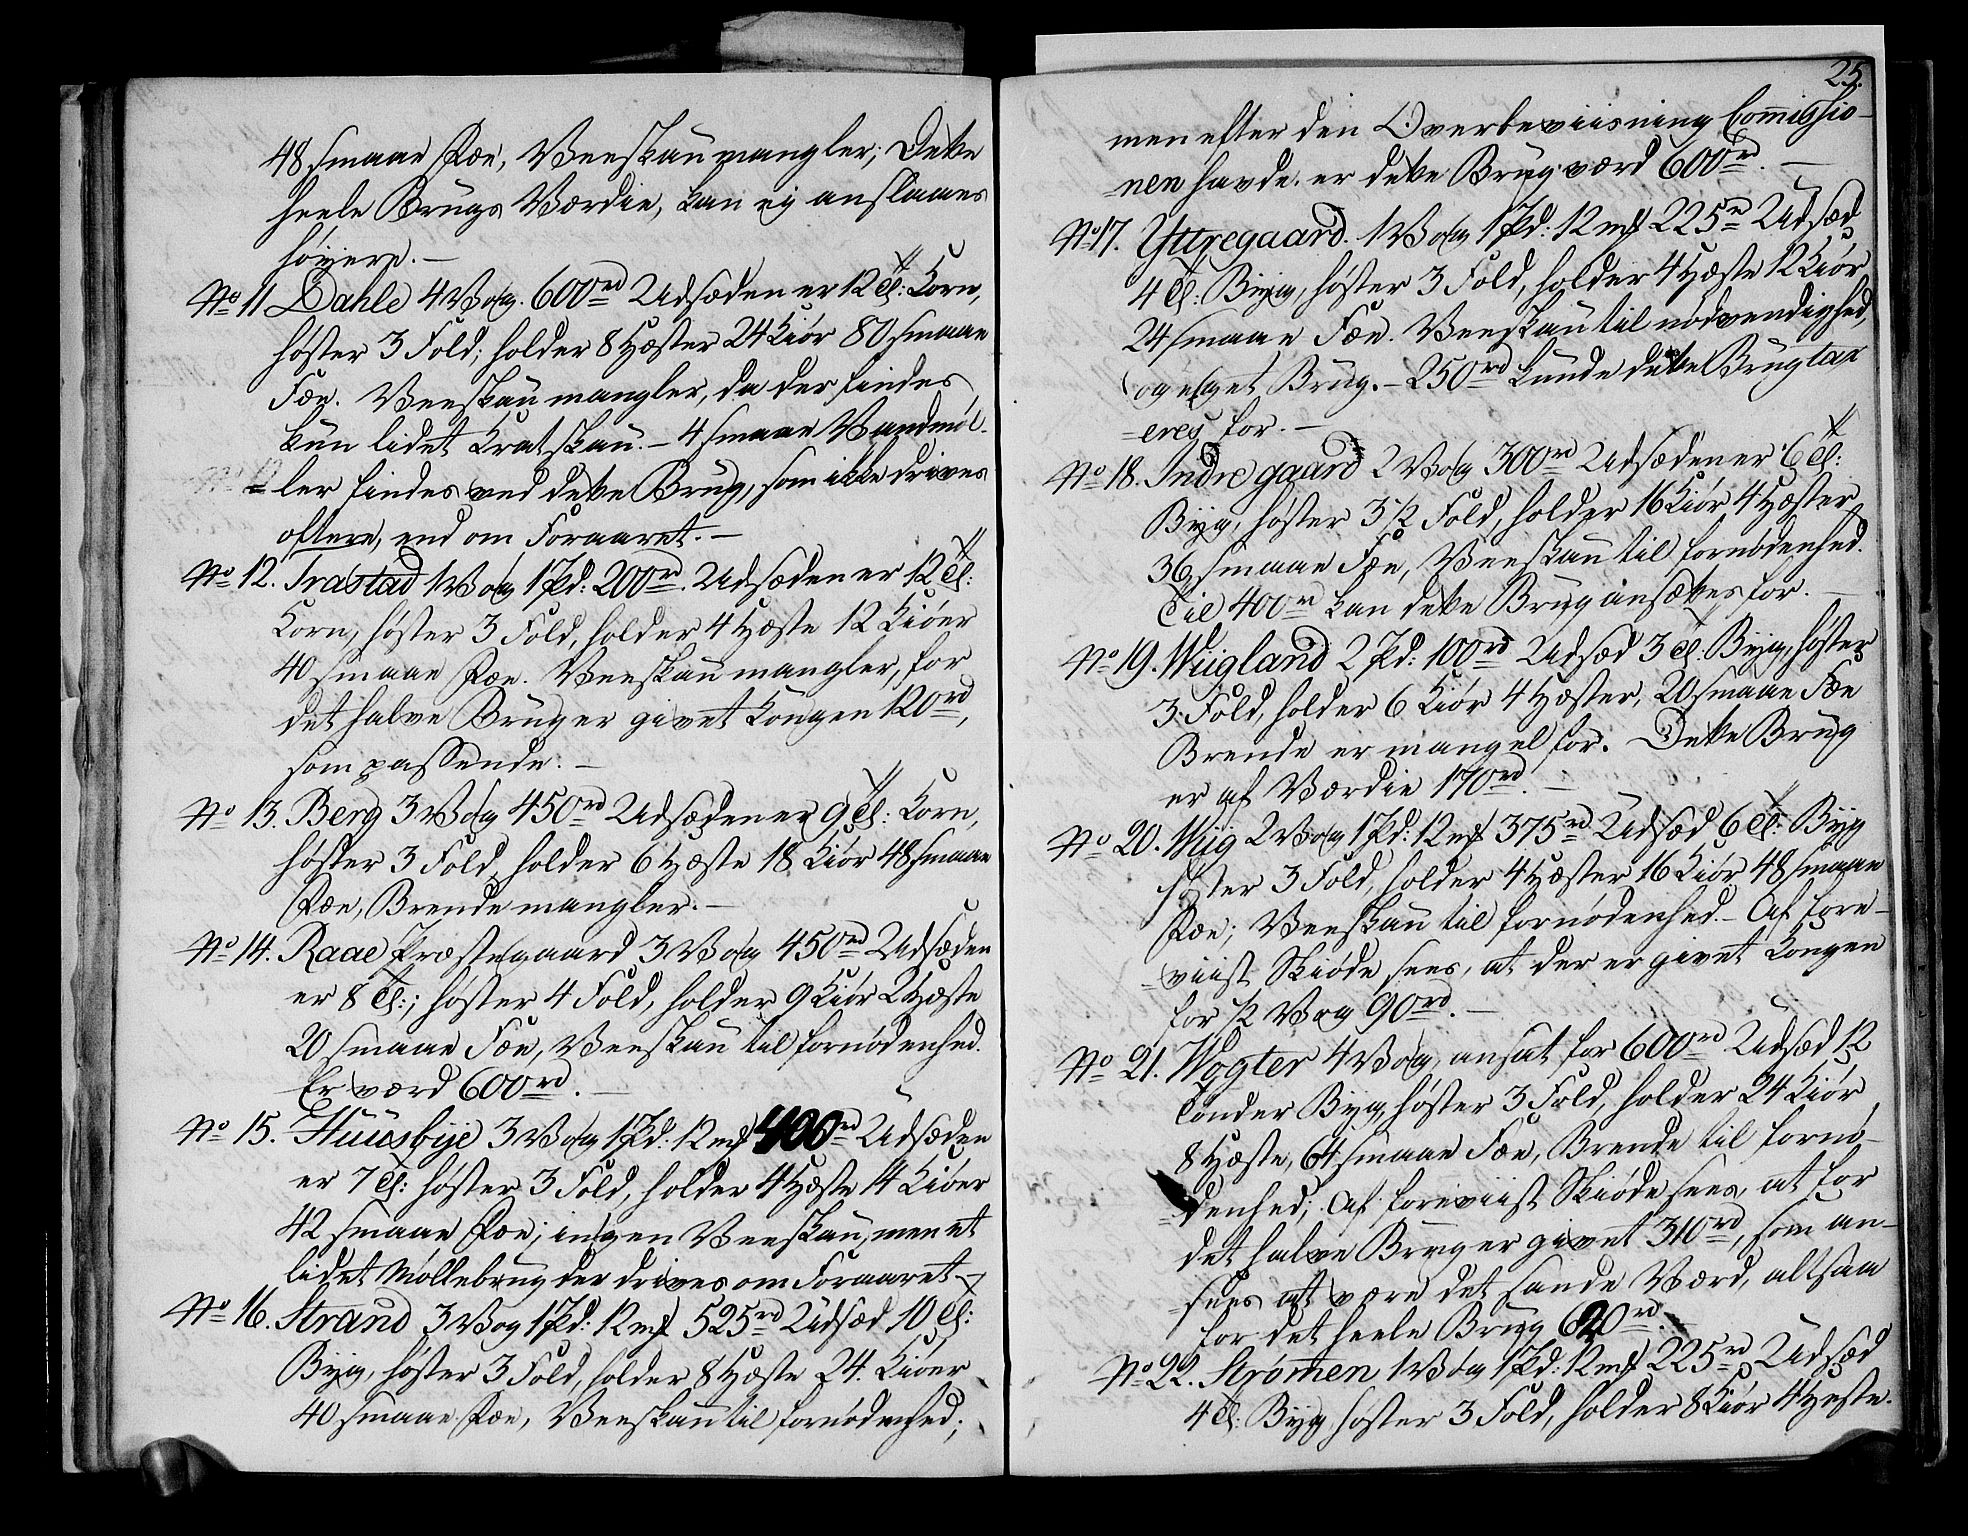 48 smaae Fæe, Veeskau mangler; Dette
heele Brugs Værdie, kan ej anslaaes
høyere. –
No 11 Dahle 4 Vog. 600rd Udsæden er 12 Tl: Korn,
høster 3 Fold; holder 8 Hæster 24 Kiør 80 smaae
Fæe. Veeskau mangler, da der findes
kun lidet Kratskau. – 4 smaae Vandmøl-
=ler findes ved dette Brug, som ikke drives
oftere, end om Foraaret. –
No 12. Trastad 1 Vog 1 Pd: 200rd. Udsæden er 12 Tl:
Korn, høster 3 Fold, holder 4 Hæste 12 Kiøer
40 smaae Fæe. Veeskau mangler, for
det halve Brug er givet Kongen 120rd,
som passende. –
No 13. Berg 3 Vog 450rd Udsæden er 9 Tl: Korn,
høster 3 Fold, holder 6 Hæste 18 Kiør 48 smaae
Fæe, Brende mangler. –
No 14. Raae Præstegaard 3 Vog 450rd Udsæden
er 8 Tl:; høster 4 Fold, holder 9 Kiør 2 Hæste
20 smaae Fæe, Veeskau til fornødenhed.
Er værd 600rd. –
No 15. Huusbye 3 Vog 1 Pd: 12 mk 400rd Udsæden
er 7 Tl: høster 3 Fold, holder 4 Hæste 14 Kiøer
42 smaae Fæe; ingen Veeskau, men et
lidet Møllebrug der drives om Foraaret –
No 16. Strand 3 Vog 1 Pd: 12 mk 525rd Udsæd 10 Tl:
Byg, høster 3 Fold, holder 8 Hæste 24. Kiøer
40 smaae Fæe, Veeskau til fornødenhed;
25.
men efter den Overbeviisning Commissio-
=nen havde. er dette Brug værd 600rd. –
No 17. Yttregaard. 1 Vog 1 Pd: 12 mk 225rd Udsæd
4 Tl: Byg, høster 3 Fold, holder 4 Hæste 12 Kiør
24 smaae Fæe. Veeskau til nødvendighed,
og eget Brug. – 250rd kunde dette Brug tax
=eres for. –
No 18. Indregaard 2 Vog 300rd Udsæden er 6 Tl:
Byg, høster 3 1/2 Fold, holder 16 Kiør 4 Hæster
36 smaae Fæe, Veeskau til fornødenhed.
Til 400rd kan dette Brug ansættes for. –
No 19. Wiigland 2 Pd: 100rd Udsæd 3 Tl. Byg, høster
3 Fold, holder 6 Kiør 4 Hæster, 20 smaae Fæe
Brende er mangel for. Dette Brug
er af Værdie 170rd. –
No 20. Wiig 2 Vog 1 Pd: 12 mk 375rd Udsæd 6 Tl: Byg
høster 3 Fold, holder 4 Hæster 16 Kiør 48 smaae
Fæe; Veeskau til fornødenhed. – Af fore-
=viist Skiøde sees, at der er givet Kongen
for 1/2 Vog 90rd. –
No 21. Wogter 4 Vog, ansat for 600rd Udsæd 12
Tønder Byg, høster 3 Fold, holder 24 Kiør
8 Hæste, 64 smaae Fæe, Brende til fornø-
=denhed; Af foreviist Skiøde sees, at for
det halve Brug er givet 310rd, som an-
=sees at være det sande Værd, altsaa
for det heele Brug 620rd. –
No 22. Strømen 1 Vog 1 Pd: 12 mk 225rd Udsæd
4 Tl: Byg høster 3 Fold, holder 8 Kiør 4 Heste.